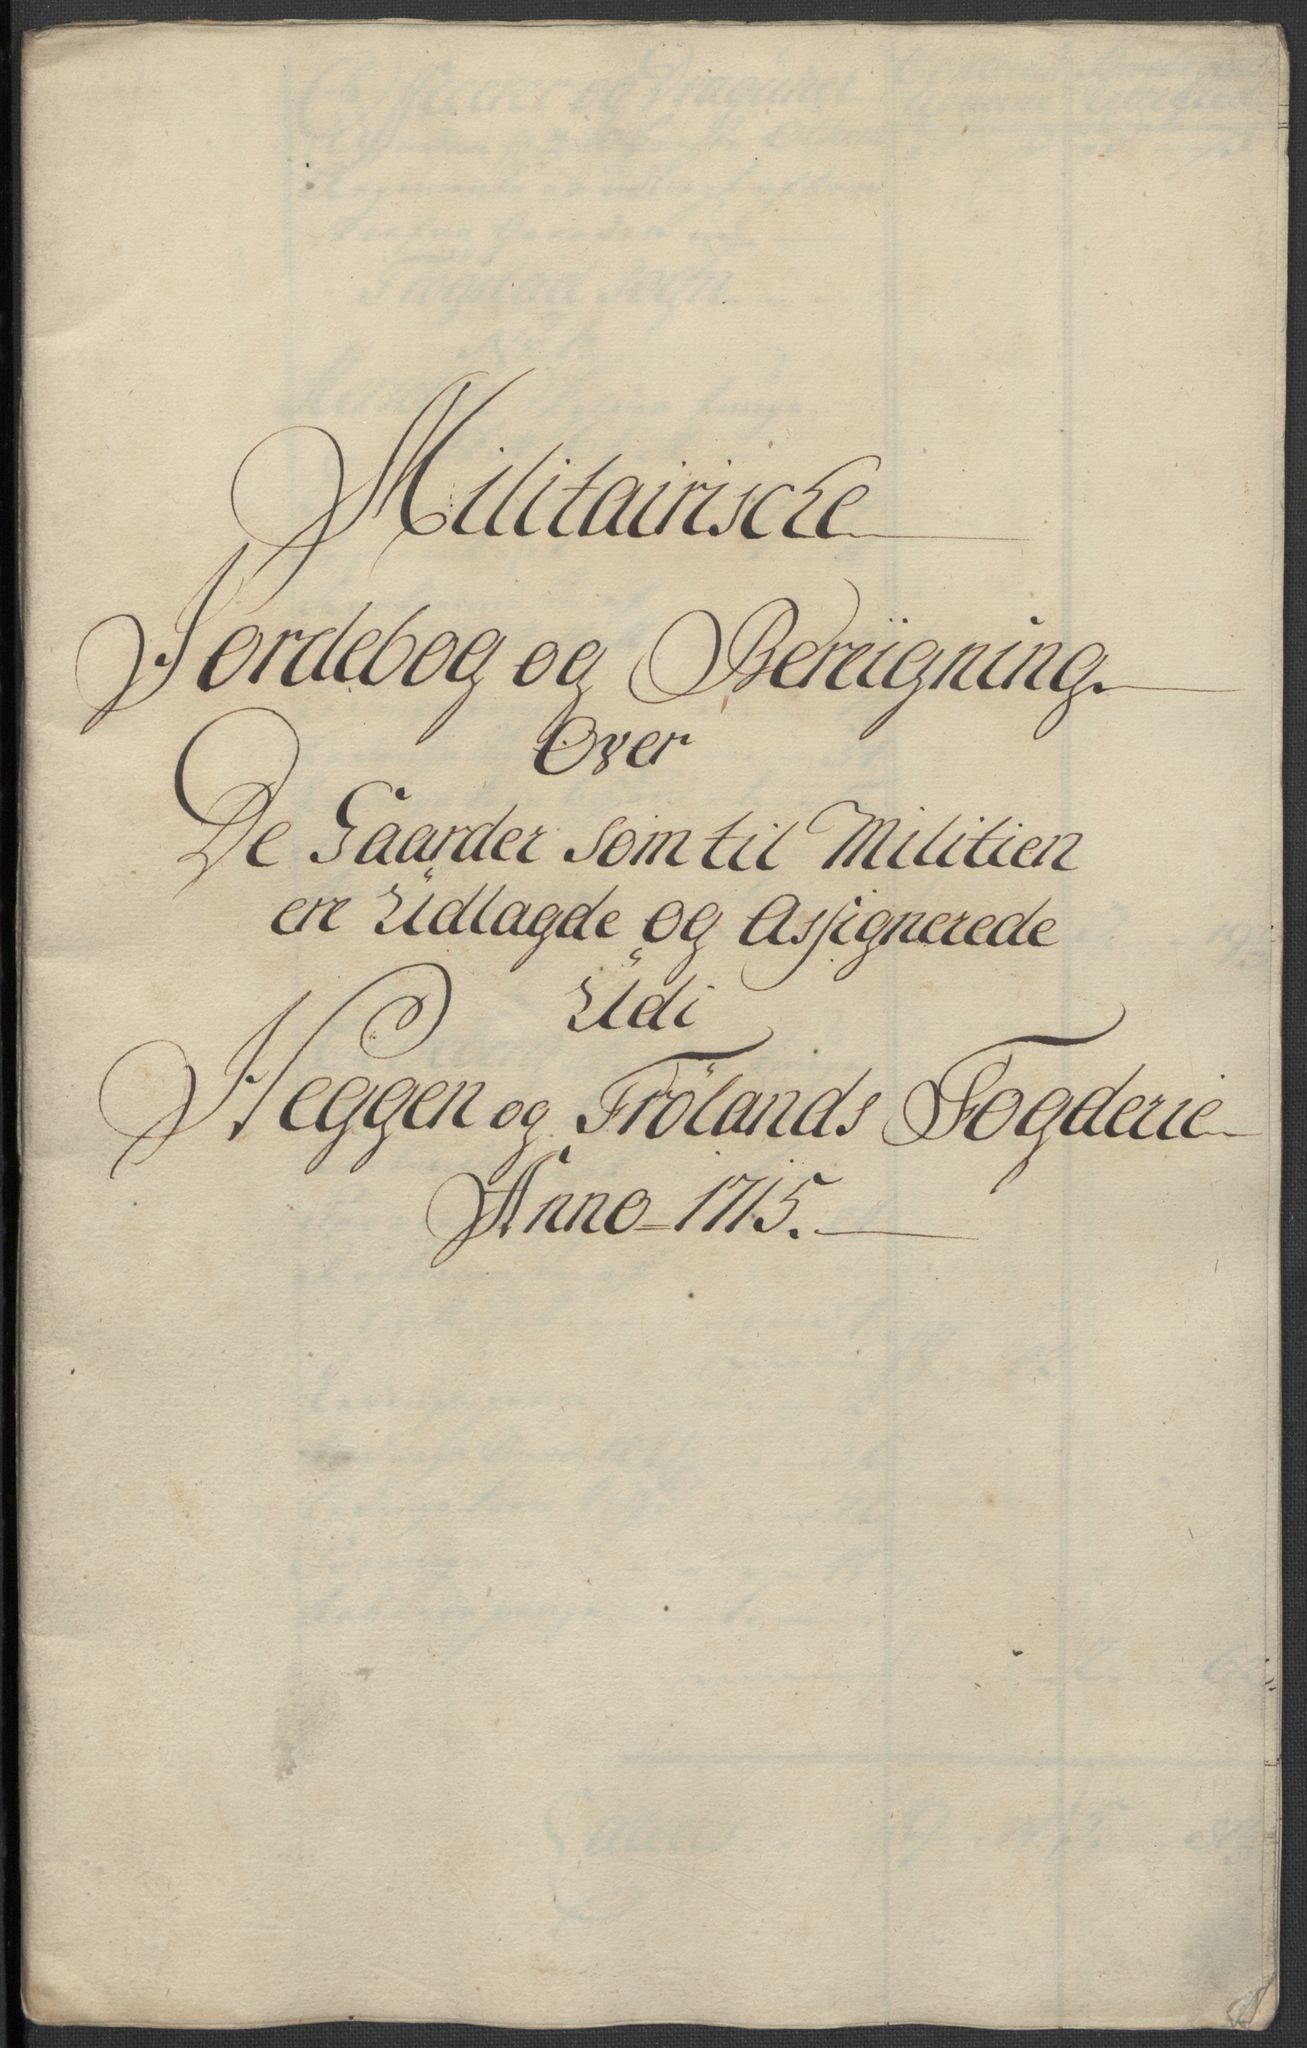 Militairische
Jordebog og Bereigning
Over
De Gaarder som til Militien
ere Udlagde og Assignerede
Udi
Heggen og Frölands Fogderie
Anno 1715.